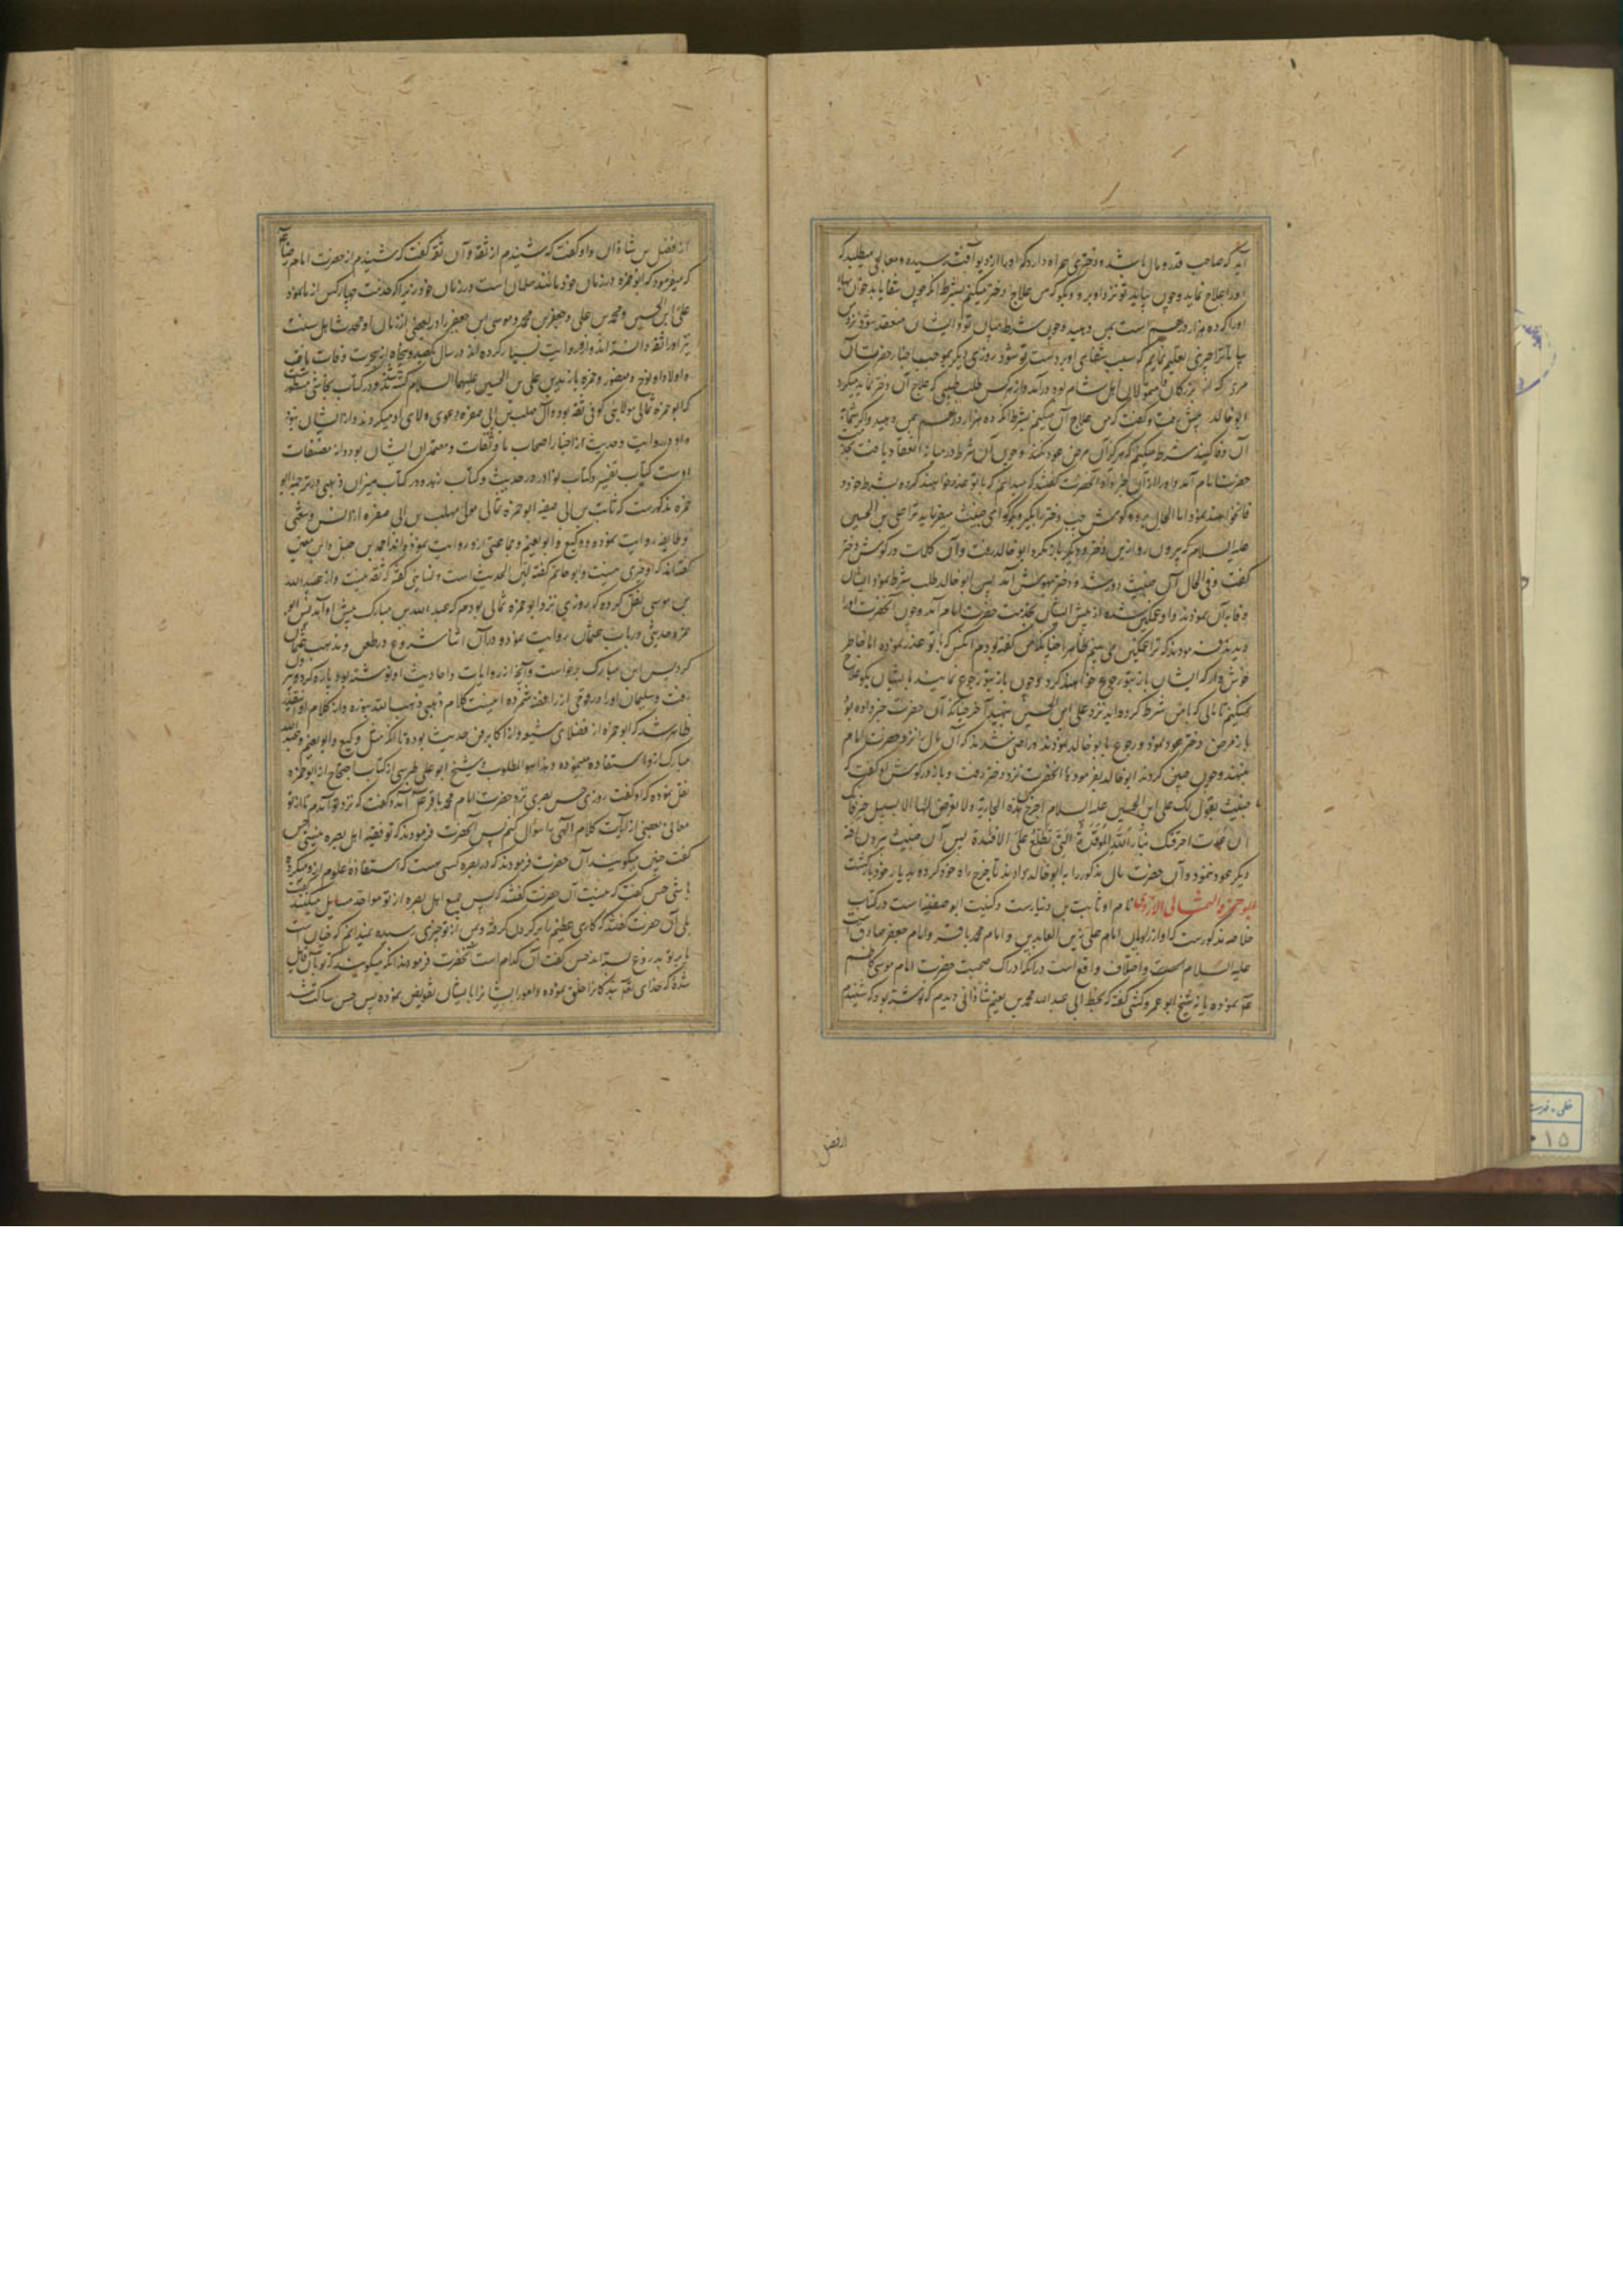 آید که صاحب قدر و مال باشد و دختری همراه دارد که او را از دیو آفت رسیده و معالجی میطلبد که
او را علاج نماید و چون بیاید تو نزد او برو و بگو که من علاج دختر میکنم بشرط آنکه چون شفا یابد
او را که ده هزار درهم است بمن دهید و چون شرط میان تو و ایشان منعقد شود نزد من
بیا تا ترا چیزی تعلیم نمایم که سبب شفای او بر دست تو شود روزی دیگر بموجب اخبار حضرت آن
مردی که از بزرگان و متمولان اهل شام بود درآمد و از هر کس طلب طبیبی که علاج آن دختر نماید میکرد
ابو خالد پیش رفت و گفت که من علاج آن میکنم بشرط آنکه ده هزار درهم بمن دهید و اگر شما
آن وفا کنید شرط میکنم که هرگز آن مرض عود نکند و چون آن شرط در میانه انعقاد یافت
حضرت امام آمد و او را از آن خبر داد آنحضرت گفتند که میدانم که با تو غدر خواهند کرد و بشرط خود
وفا نخواهند نمود اما الحال برو و گوش چپ دختر را بگیر و بگو که ای خبیث میفرماید ترا علی بن الحسین
علیه السلام که بیرون رو از این دختر و دیگر باز نگرد ابو خالد رفت و آن کلمات در گوش دختر
گفت و فی الحال آن خبیث دور شد و دختر بهوش آمد پس ابو خالد طلب شرط نمود ایشان
وفا بدان ننمودند و او غمگین شده از پیش ایشان بخدمت حضرت امام آمد و چون آنحضرت او را
دیدند فرمودند که ترا غمگین می بینم ظاهرا چنانکه من گفته بودم آنکس که با تو غدر نموده اما خاطر
خوش دار که ایشان باز بتو رجوع خواهند کرد و چون باز بتو رجوع نمایند با ایشان بگو علاج
نمیکنم تا مالی که با من شرط کرده اید نزد علی ابن الحسین ننهید آخر چنانکه آن حضرت خبر داده بود
باز مرض دختر عود نمود و رجوع بابو خالد نمودند و راضی شدند که آن مال را نزد حضرت امام
بنهند و چون چنین کردند ابو خالد بفرموده آنحضرت نزد دختر رفت و باز در گوش او گفت که
یا خبیث یقول لک علی ابن الحسین علیه السلام اخرج من هذه الجاریة ولا تعرض لها الا بسبیل خیر فانک
ان عدت احرقتک بنار الله الموقدة التی تطلع علی الافئدة پس آن خبیث بیرون رفته
دیگر عود ننمود و آن حضرت مال مذکور را به ابو خالد دادند تا خرج راه خود کرده بدیار خود بازگشت
ابو حمزه الثمالی الازدی نام او ثابت بن دینارست و کنیت ابو صفیه است در کتاب
خلاصه مذکورست که او از راویان امام علی زین العابدین و امام محمد باقر و امام جعفر صادق است
علیهم السلام و اختلاف واقع است در آنکه ادراک صحبت حضرت امام موسی کاظم
نموده یا نه شیخ ابو عمرو کشی گفته که بخط ابی عبدالله محمد بن نعیم شاذانی دیدم که نوشته بود که شنیدم
ازفضل
از فضل بن شاذان و او گفت که شنیدم از ثقه و آن ثقه گفت که شنیدم از حضرت امام رضا
که میفرمود که ابو حمزه در زمان خود مانند سلمان است در زمان خود زیرا که خدمت چهار کس از ما نمود
علی ابن الحسین و محمد بن علی و جعفر بن محمد و موسی بن جعفر را در بعضی از زمان او و محدثان اهل سنت
نیز او را ثقه دانسته اند و از او روایت بسیار کرده اند و در سال یکصد و پنجاه از هجرت وفات یافت
و اولاد او نوح و منصور و حمزه با زید بن علی بن الحسین علیهما السلام کشته شدند و در کتاب نجاشی مسطور است
که ابو حمزه ثمالی مولای کوفی ثقه بود و آل مهلب بن ابی صفره دعوی ولای او میکردند و از ایشان نبود
و او در روایت و حدیث از اخیار اصحاب ما و ثقات و معتمدان ایشان بود و از مصنفات
اوست کتاب تفسیر و کتاب نوادر در حدیث و کتاب زهد و در کتاب میزان ذهبی در ترجمه ابو
حمزه مذکورست که ثابت بن ابی صفیه ابو حمزه ثمالی مولی مهلب بن ابی صفره از انس و شعبی
و طایفه روایت نموده و وکیع و ابو نعیم و جماعتی از او روایت نموده اند احمد بن حنبل و ابن معین
گفته اند که او چیزی نیست و ابو حاتم گفته لین الحدیث است و نسایی گفته که ثقه نیست و از عبید الله
بن موسی نقل کرده که روزی نزد ابو حمزه ثمالی بودم که عبد الله بن مبارک پیش او آمد پس ابو
حمزه حدیثی در باب عثمان روایت نمود و در آن اثنا شروع در طعن و مذمت عثمان
کرد پس ابن مبارک برخاست و آنچه از روایات و احادیث او نوشته بود پاره کرده بیرون
رفت و سلیمان او را در قومی از رافضه شمرده اینست کلام ذهبی ذهب الله بنوره و از کلام او
ظاهر شد که ابو حمزه از فضلای شیعه و از اکابر فن حدیث بوده تا آنکه مثل وکیع و ابو نعیم و عبدالله
مبارک از و استفاده مینموده و هذا هو المطلوب و شیخ ابو علی طبرسی در کتاب احتجاج از ابو حمزه
نقل نموده که او گفت روزی حسن بصری نزد حضرت امام محمد باقر آمد و گفت که نزد تو آمدم تا از تو
معانی بعضی از آیات کلام الهی را سؤال کنم پس آنحضرت فرمودند که تو فقیه اهل بصره نیستی حسن
گفت چنین میگویند آن حضرت فرمودند که در بصره کسی هست که استفاده علوم از و میکرده
باشی حسن گفت که نیست آن حضرت گفتند که پس جمیع اهل بصره از تو اخذ مسایل میکنند گفت
بلی آن حضرت گفتند که کاری عظیم را بر گردن گرفته و من از تو چیزی رسیده نمیدانم که چنان است
یا بر تو بدروغ بسته اند حسن گفت آن کدام است آنحضرت فرمودند آنکه میگویند که تو بآن قایل
شده که خدای تعالی بندگان را خلق نموده و امور ایشان را بایشان تفویض نموده پس حسن ساکت شد